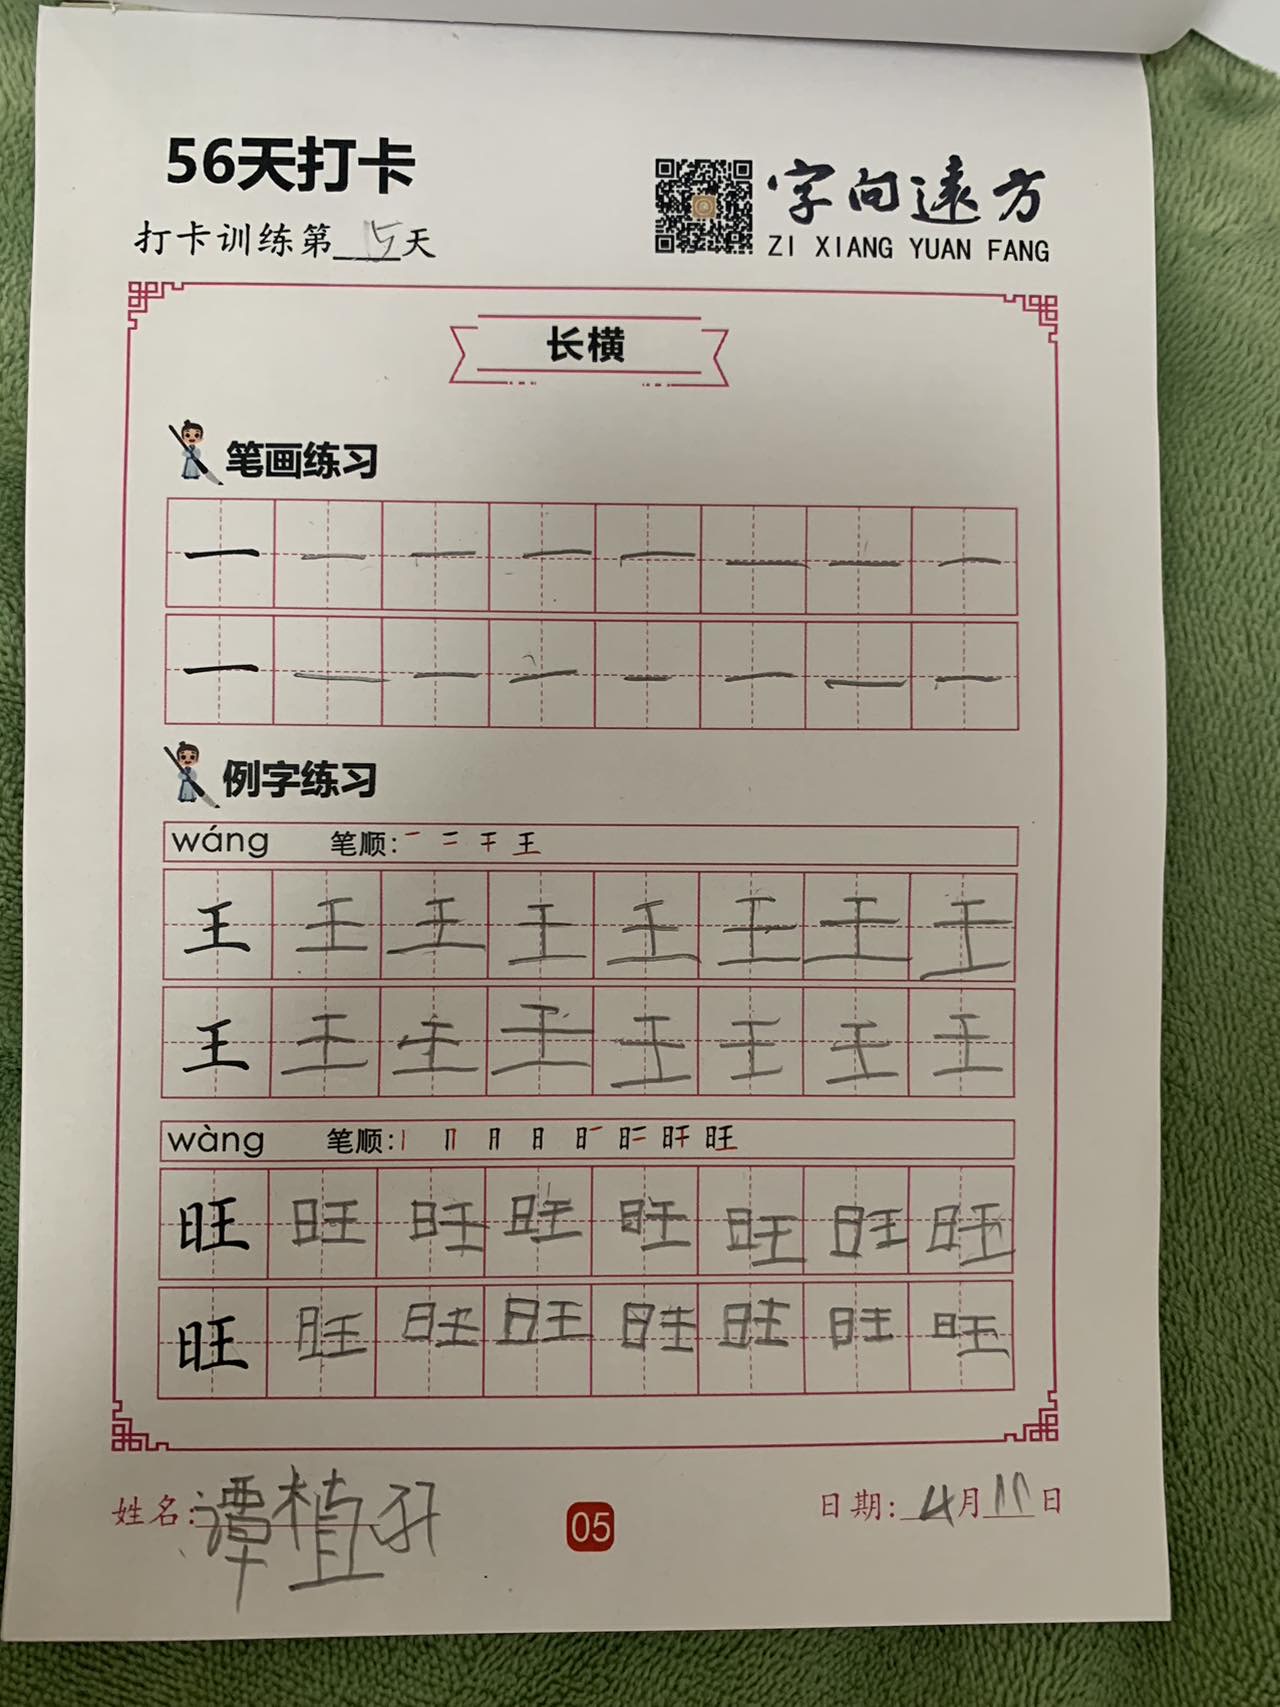 56天打卡
字向遠方
打卡训练第 15 天
ZI XIANG YUAN FANG
长横
笔画练习
一 一 一 一 一 一 一 一
一 一 一 一 一 一 一 一
例字练习
wáng 笔顺: 王
王 王 王 王 王 王 王 王
王 王 王 王 王 王 王 王
wàng 笔顺: 旺
旺 旺 旺 旺 旺 旺 旺 旺
旺 旺 旺 旺 旺 旺 旺 旺
姓名: 谭植
05
日期: 4月11日